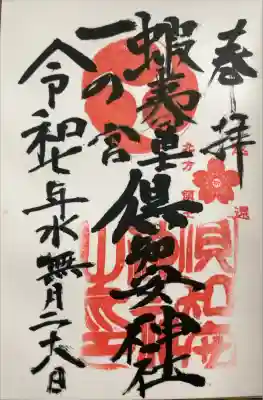 奉拝
蝦夷
倶知安神社
一の宮
令和七年水無月二十八日